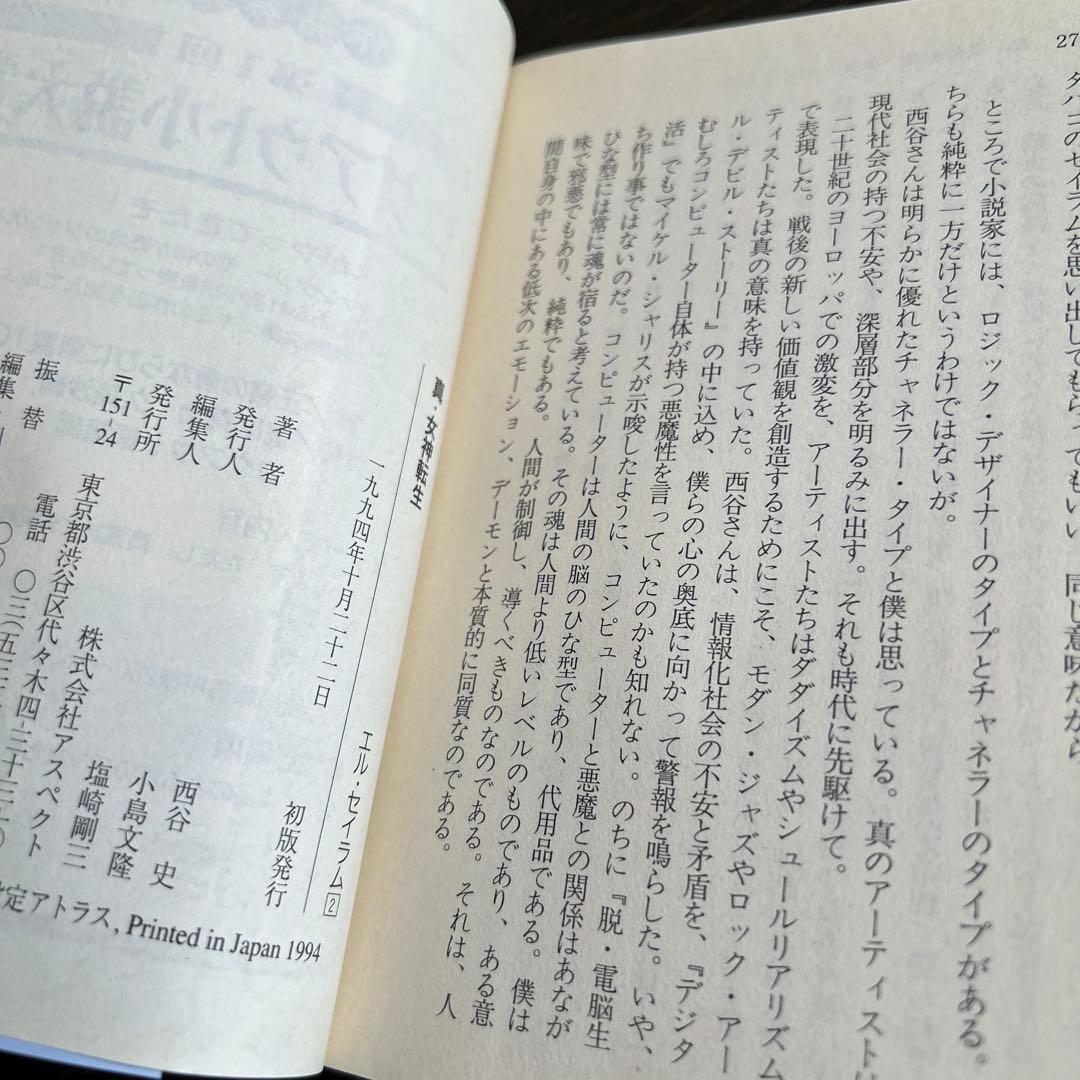 27
タバコのセイラムを思い出してもらってもいい。同じ意味だから
ところで小説家には、ロジック・デザイナーのタイプとチャネラーのタイプがある。
ちらも純粋に一方だけというわけではないが。
西谷さんは明らかに優れたチャネラー・タイプと僕は思っている。真のアーティストは
現代社会の持つ不安や、深層部分を明るみに出す。それも時代に先駆けて。
二十世紀のヨーロッパでの激変を、アーティストたちはダダイズムやシュールリアリズム
で表現した。戦後の新しい価値観を創造するためにこそ、モダン・ジャズやロック・アー
ティストたちは真の意味を持っていた。西谷さんは、情報化社会の不安と矛盾を、『デジタ
ル・デビル・ストーリー』の中に込め、僕らの心の奥底に向かって警報を鳴らした。いや、
むしろコンピューター自体が持つ悪魔性を言っていたのかも知れない。のちに『脱・電脳生
活』でもマイケル・シャリスが示唆したように、コンピューターと悪魔との関係はあなが
ち作り事ではないのだ。コンピューターは人間の脳のひな型であり、代用品である。僕は
ひな型には常に魂が宿ると考えている。その魂は人間より低いレベルのものであり、ある意
味で邪悪でもあり、純粋でもある。人間が制御し、導くべきものなのである。それは、人
間自身の中にある低次のエモーション、デーモンと本質的に同質なのである。
真・女神転生
エル・セイラム2
一九九四年十月二十二日 初版発行
著者 西谷 史
発行人 小島文隆
編集人 塩崎剛三
発行所 株式会社アスペクト
〒151-24 東京都渋谷区代々木四-三十三-一〇
電話 〇三(五三
振替 〇〇
編集
アトラス, Printed in Japan 1994
第1回
小説大